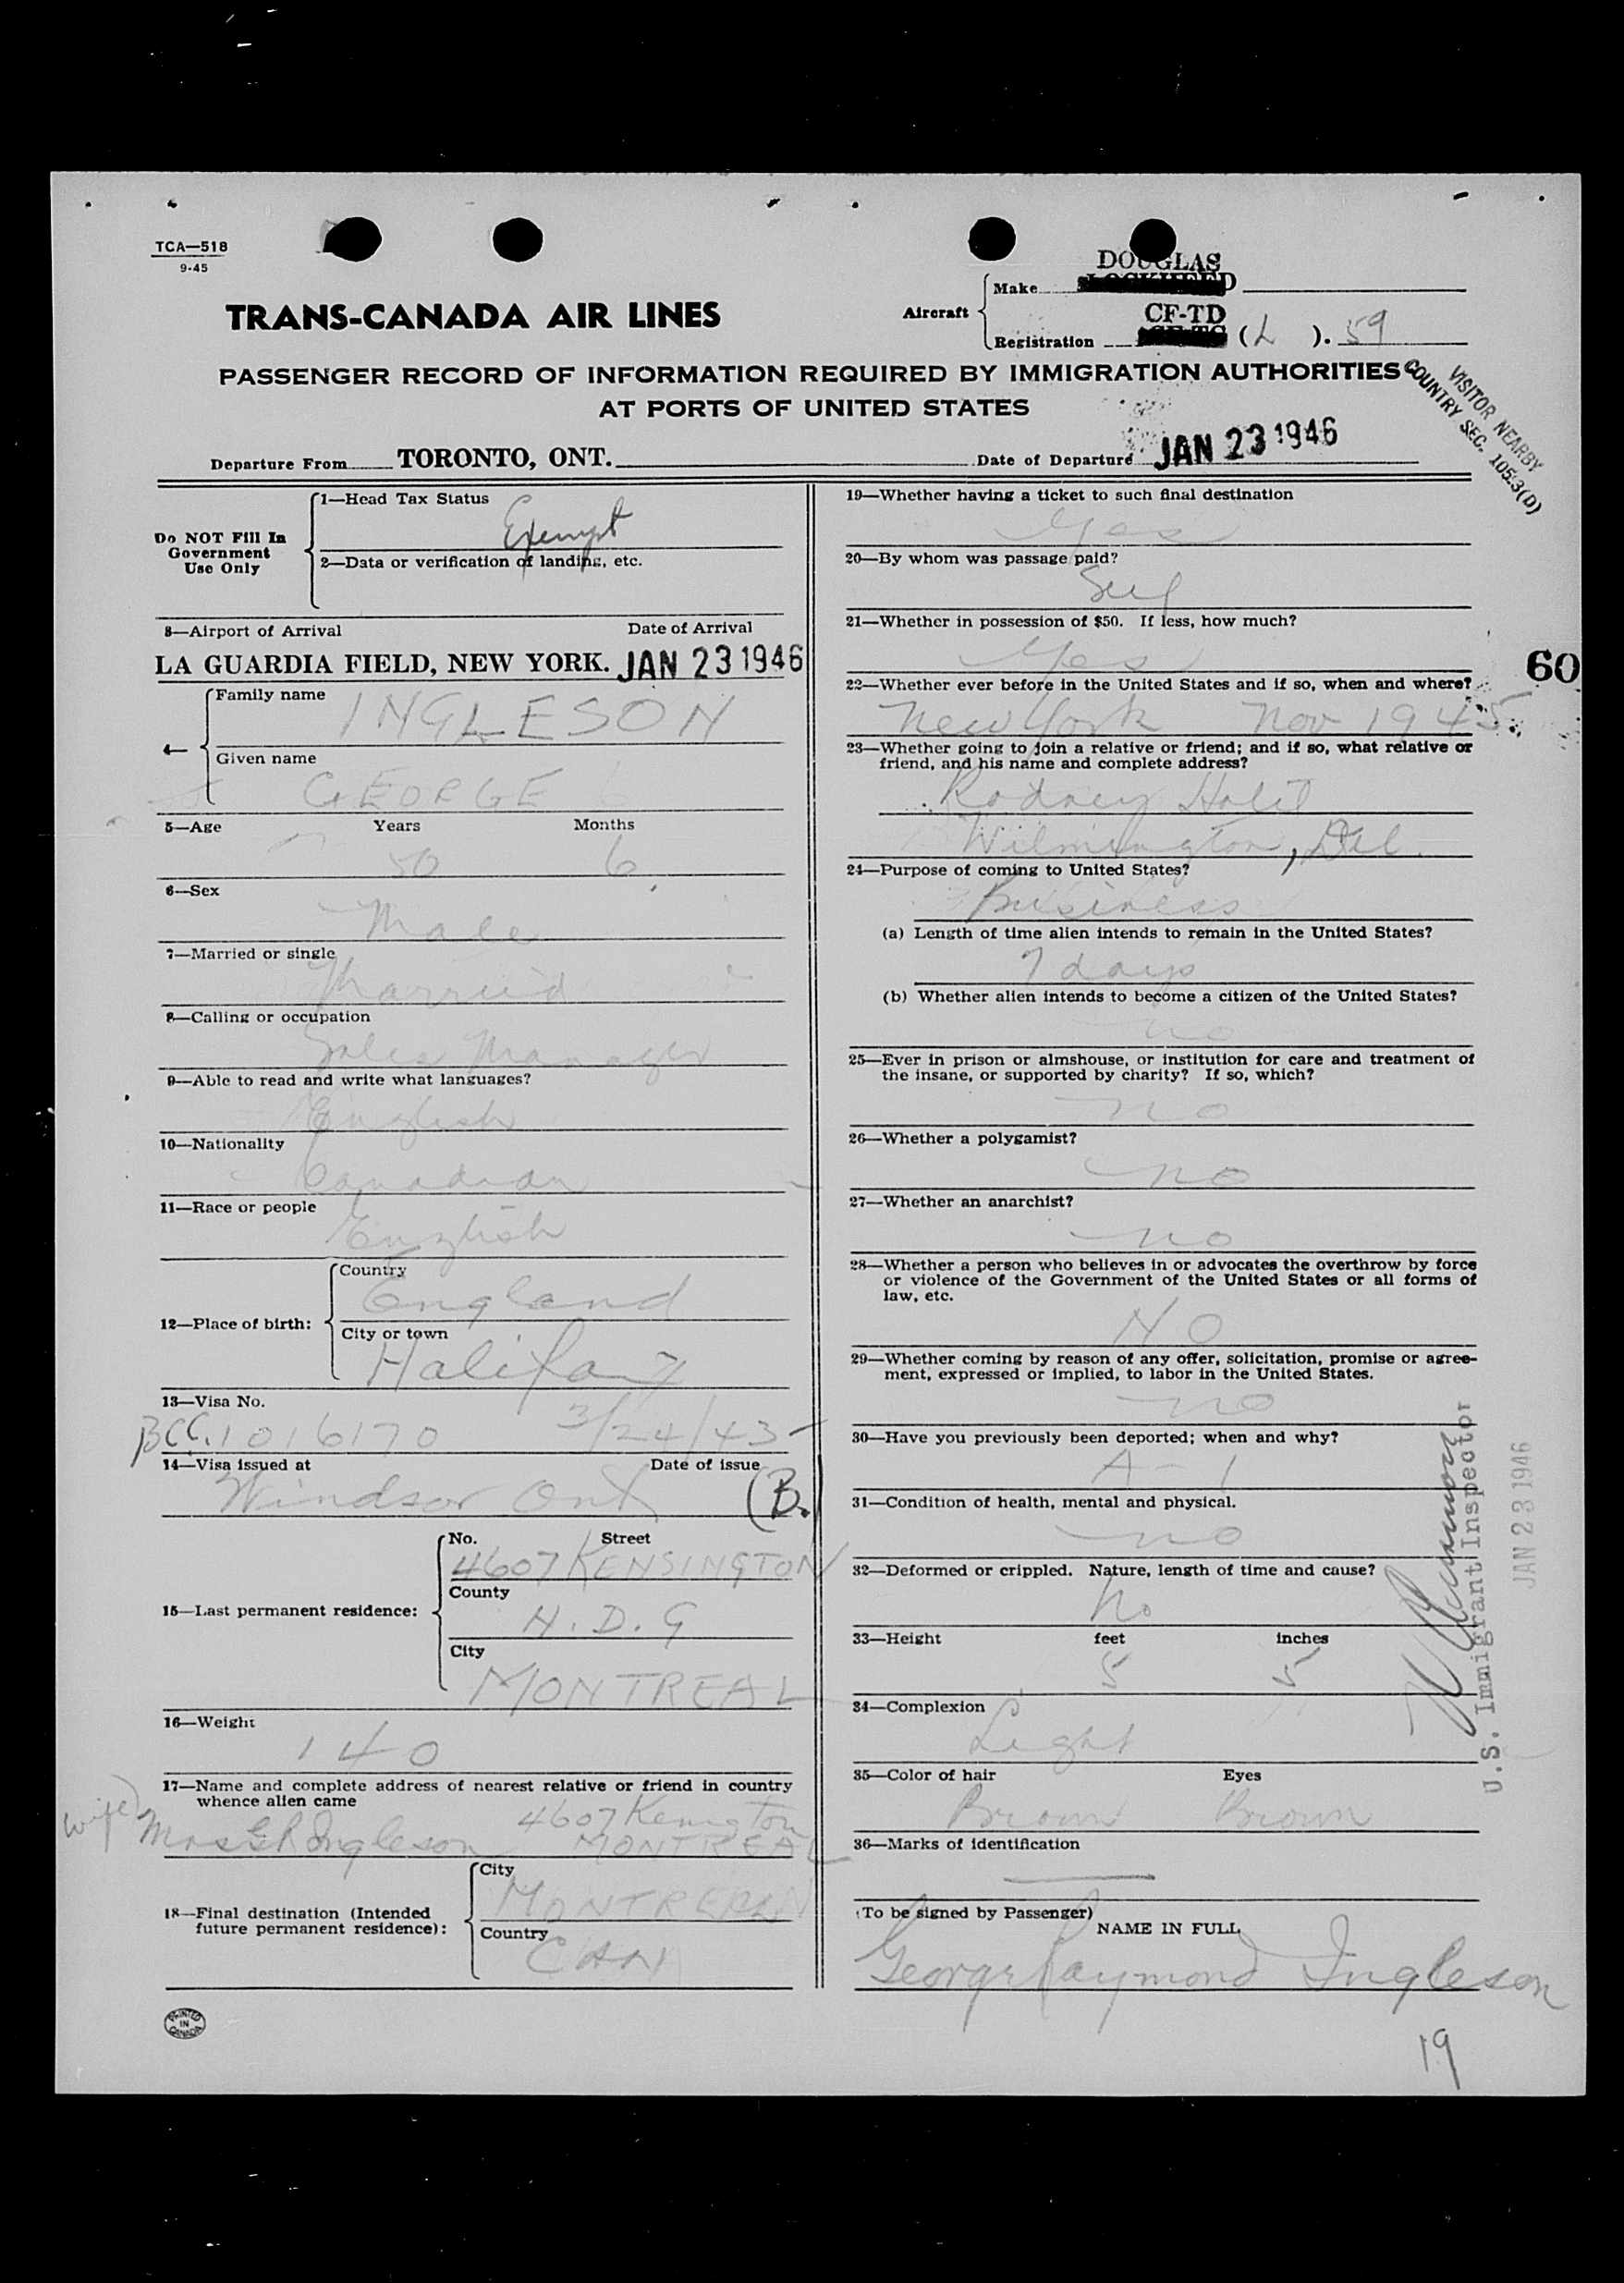 TCA—518
9-45
DOUGLAS
Aircraft
Make
TRANS-CANADA AIR LINES
CF-TD
Registration (L ). 59
PASSENGER RECORD OF INFORMATION REQUIRED BY IMMIGRATION AUTHORITIES
AT PORTS OF UNITED STATES
VISITOR NEARBY
COUNTRY SEC. 105.3(D)
Departure From TORONTO, ONT. Date of Departure JAN 23 1946
Do NOT Fill In
Government
Use Only
1—Head Tax Status
Exempt
2—Data or verification of landing, etc.
3—Airport of Arrival Date of Arrival
LA GUARDIA FIELD, NEW YORK. JAN 23 1946
4—
Family name
INGLESON
Given name
GEORGE
5—Age Years Months
50 6
6—Sex
Male
7—Married or single
Married
8—Calling or occupation
Sales Manager
9—Able to read and write what languages?
English
10—Nationality
Canadian
11—Race or people
English
12—Place of birth:
Country
England
City or town
Halifax
13—Visa No.
BCC. 1016170 3/24/43
14—Visa issued at Date of issue
Windsor Ont (B.)
15—Last permanent residence:
No. Street
4607 KENSINGTON
County
N. D. G
City
MONTREAL
16—Weight
140
17—Name and complete address of nearest relative or friend in country
whence alien came
wife
Mrs G R Ingleson 4607 Kensington
MONTREAL
18—Final destination (Intended
future permanent residence):
City
MONTREAL
Country
CAN
PRINTED
IN
CANADA
19—Whether having a ticket to such final destination
Yes
20—By whom was passage paid?
Self
21—Whether in possession of $50. If less, how much?
Yes
60
22—Whether ever before in the United States and if so, when and where?
New York Nov 1945
23—Whether going to join a relative or friend; and if so, what relative or
friend, and his name and complete address?
Rodney
Wilmington, Del.
24—Purpose of coming to United States?
Business
(a) Length of time alien intends to remain in the United States?
7 days
(b) Whether alien intends to become a citizen of the United States?
no
25—Ever in prison or almshouse, or institution for care and treatment of
the insane, or supported by charity? If so, which?
no
26—Whether a polygamist?
no
27—Whether an anarchist?
no
28—Whether a person who believes in or advocates the overthrow by force
or violence of the Government of the United States or all forms of
law, etc.
NO
29—Whether coming by reason of any offer, solicitation, promise or agree-
ment, expressed or implied, to labor in the United States.
no
30—Have you previously been deported; when and why?
A-1
31—Condition of health, mental and physical.
no
32—Deformed or crippled. Nature, length of time and cause?
No
33—Height feet inches
5 5
34—Complexion
Light
35—Color of hair Eyes
Brown Brown
36—Marks of identification
U.S. Immigrant Inspector
JAN 23 1946
(To be signed by Passenger)
NAME IN FULL
George Raymond Ingleson
19